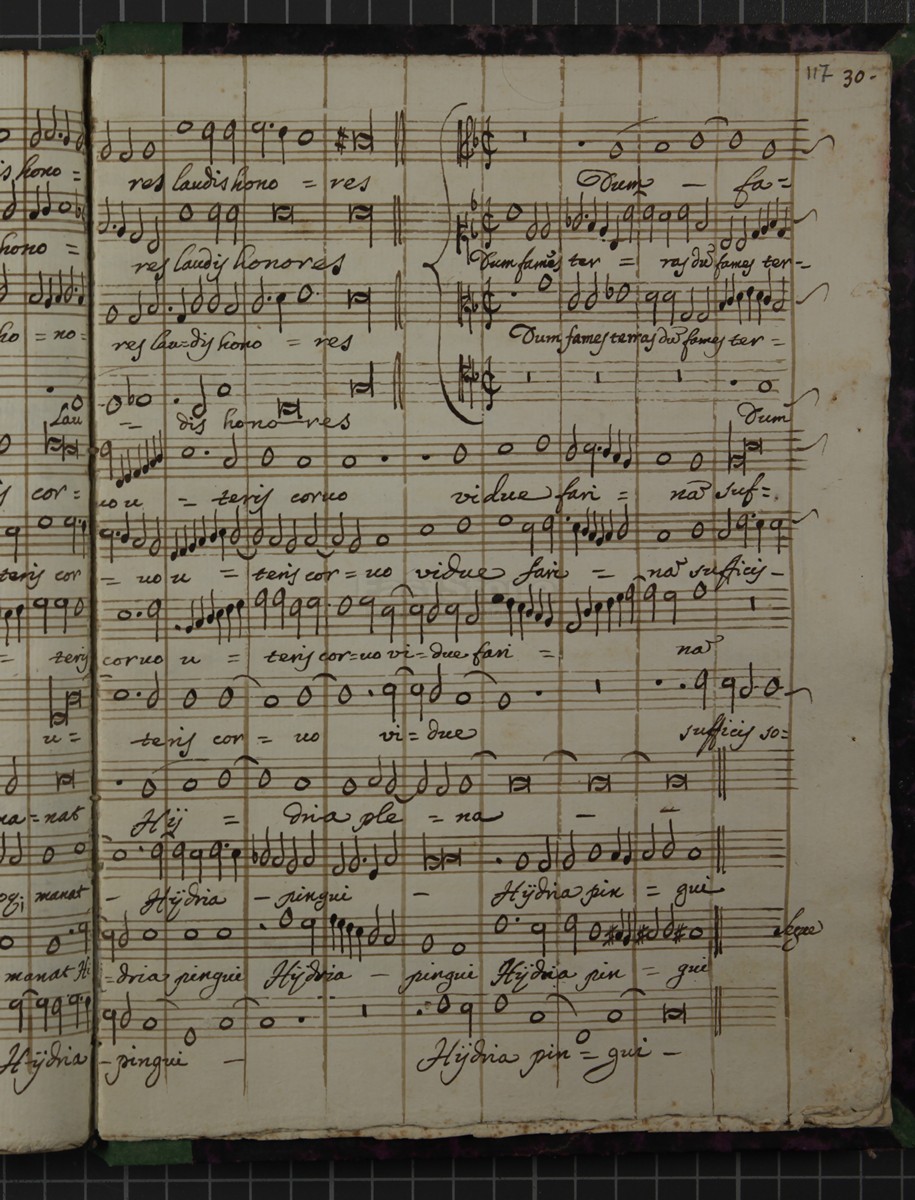 117 30.
is hono = res laudis hono = res Dum — fa=
hono = res laudis honores Dum fames ter = ras dū fames ter-
ho = no: res lau=dis hono = res Dum fames terras dū fames ter =
Lau — dis hono — res Dum
cor: uo u — teris coruo vidue fari = nā suf=
teris cor = uo u = teris cor = uo vidue fari — nā sufficis —
= teris coruo u = teris cor=uo vi=due fari = nā
u= teris cor = uo vi=due sufficis so=
na=nat Hÿ = dria ple = na — —
manat — Hÿdria — pingui — Hÿdria pin = gui
manat Hi =dria pingui Hÿdria — pingui Hÿdria pin = gui
Hÿdria — pingui — Hÿdria pin = gui —